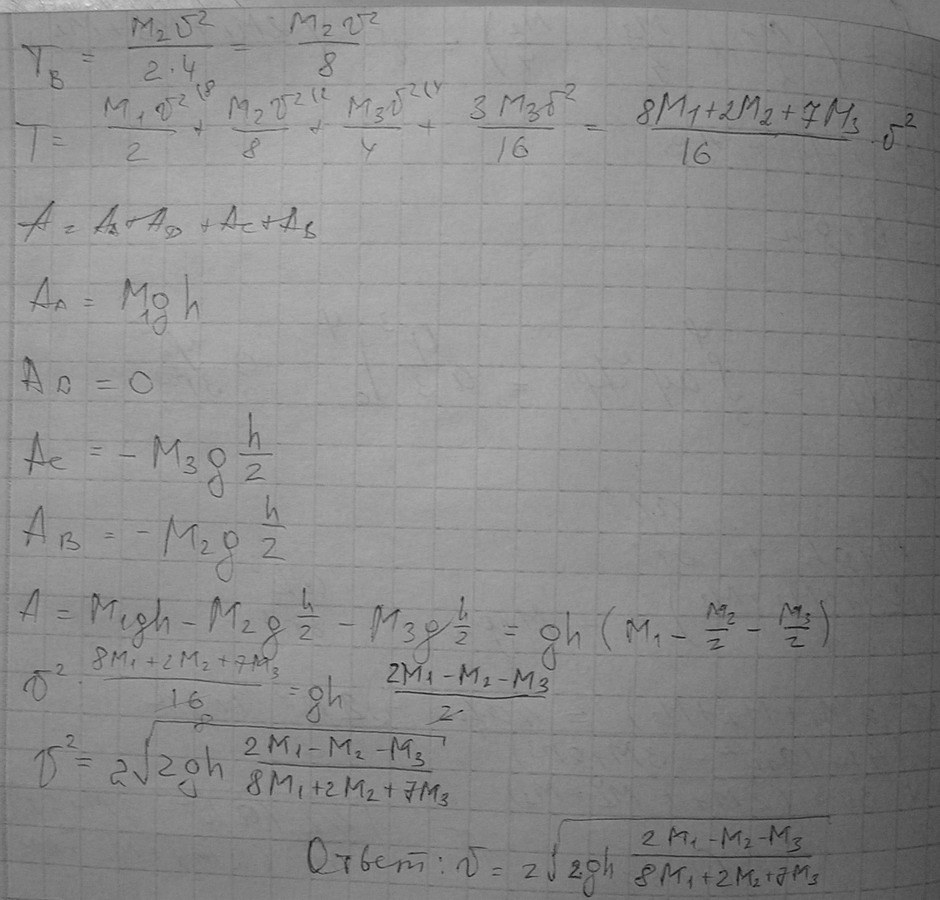 T_B = M₂v²/2·4 = M₂v²/8
T = M₁v²⁽⁸/2 + M₂v²⁽²/8 + M₃v²⁽⁴/4 + 3M₃v²/16 = 8M₁+2M₂+7M₃/16 v²
A = A_A + A_D + A_C + A_B
A_A = M₁gh
A_D = 0
A_C = -M₃g h/2
A_B = -M₂g h/2
A = M₁gh - M₂g h/2 - M₃g h/2 = gh (M₁ - M₂/2 - M₃/2)
v² · 8M₁+2M₂+7M₃/16 = gh 2M₁-M₂-M₃/2
8
v² = 2√(2gh 2M₁-M₂-M₃/8M₁+2M₂+7M₃)
Ответ: v = 2√(2gh 2M₁-M₂-M₃/8M₁+2M₂+7M₃)